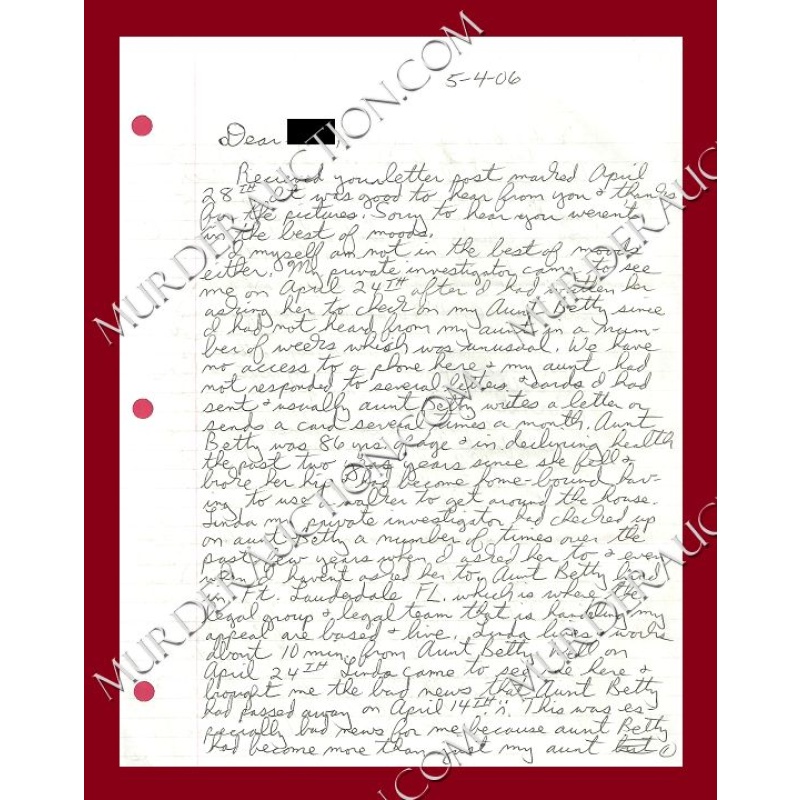 5-4-06
Dear
Received your letter post marked April
28TH. It was good to hear from you & thanks
for the pictures. Sorry to hear you weren't
in the best of moods.
I myself am not in the best of moods
either. My private investigator came to see
me on April 24TH after I had written her
asking her to check on my Aunt Betty since
I had not heard from my aunt in a num-
ber of weeks which was unusual. We have
no access to a phone here & my aunt had
not responded to several letters & cards I had
sent & usually aunt Betty writes a letter or
sends a card several times a month. Aunt
Betty was 86 yrs. of age & in declining health
the past two years since she fell &
broke her hip & had become home-bound hav-
ing to use a walker to get around the house.
Linda my private investigator had checked up
on aunt Betty a number of times over the
past few years when I asked her to & even
when I haven't asked her to. Aunt Betty lived
in Ft. Lauderdale FL. which is where the
legal group & legal team that is handling my
appeal are based & live. Linda lives & works
about 10 min. from Aunt Betty. Well on
April 24TH Linda came to see me here &
brought me the bad news that Aunt Betty
had passed away on April 14TH. This was es-
pecially bad news for me because aunt Betty
had become more than just my aunt
1
MURDERAUCTION.COM
MURDERAUCTION.COM
MURDERAUCTION.COM
MURDERAUCTION.COM
MURDERAUCTION.COM